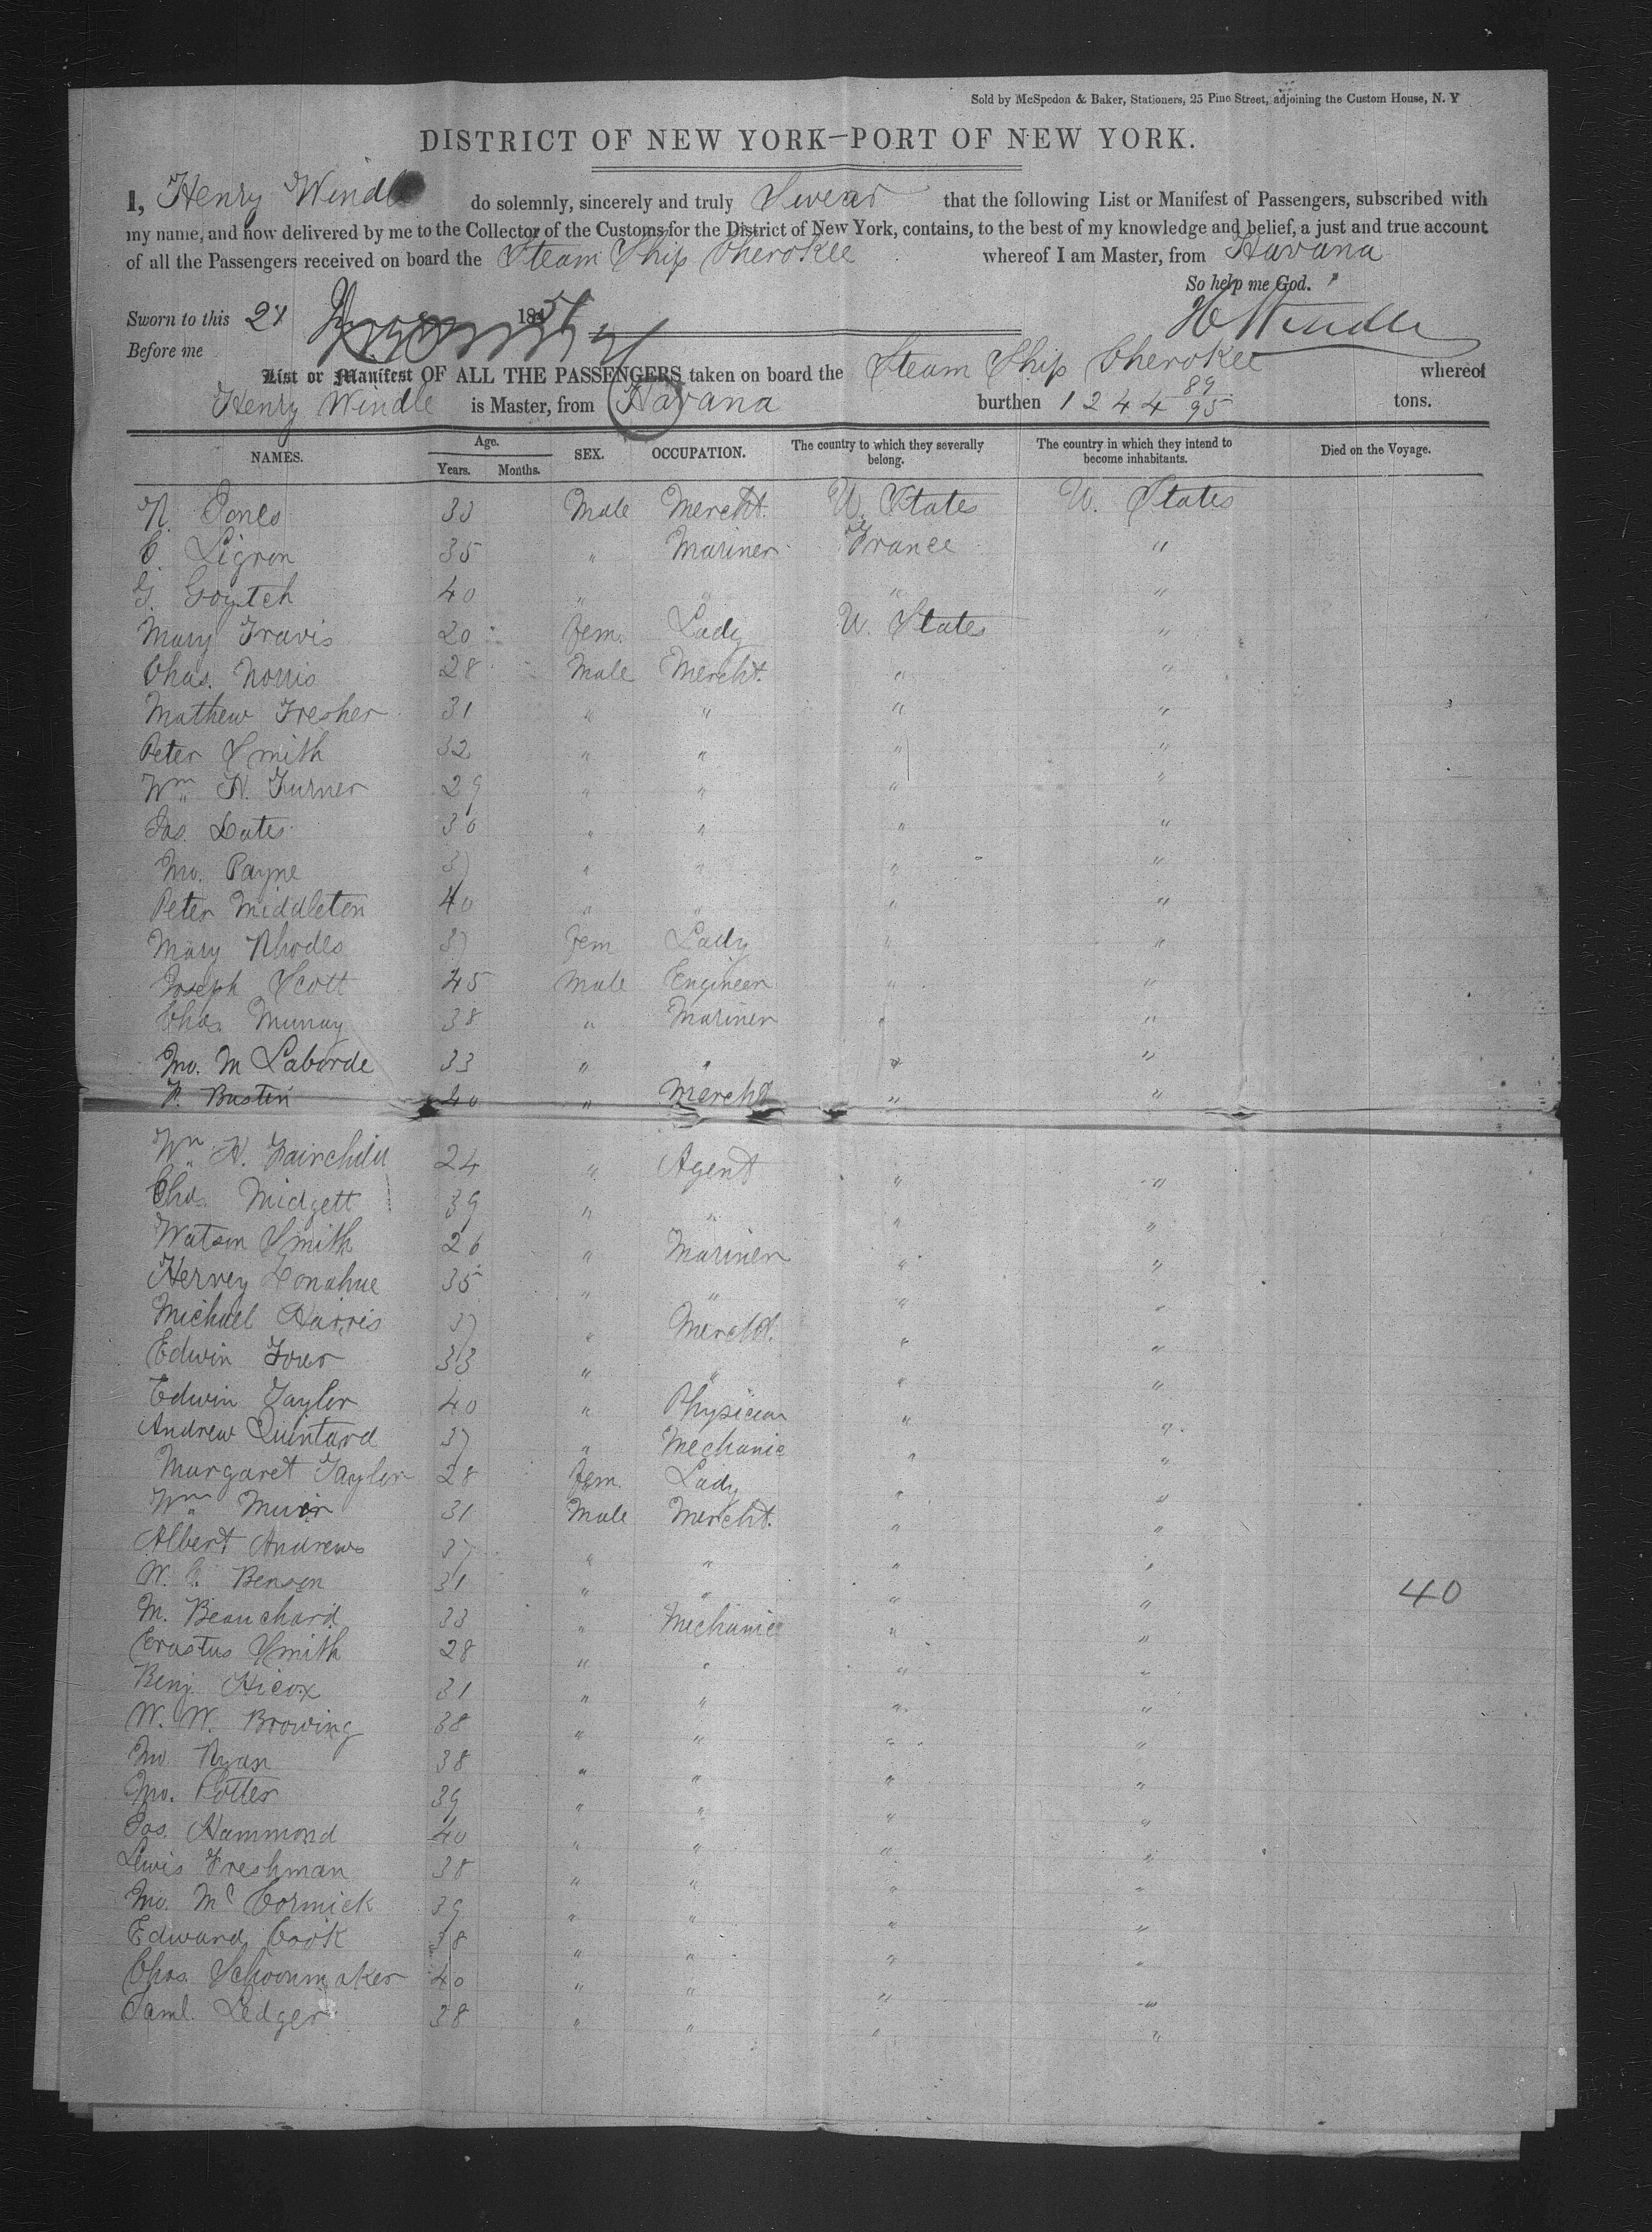 Sold by McSpedon & Baker, Stationers, 25 Pine Street, adjoining the Custom House, N. Y
DISTRICT OF NEW YORK—PORT OF NEW YORK.
I, Henry Windle do solemnly, sincerely and truly Swear that the following List or Manifest of Passengers, subscribed with
my name, and now delivered by me to the Collector of the Customs for the District of New York, contains, to the best of my knowledge and belief, a just and true account
of all the Passengers received on board the Steam Ship Cherokee whereof I am Master, from Havana
So help me God.
Sworn to this 27 1851 H Windle
Before me
List or Manifest OF ALL THE PASSENGERS taken on board the Steam Ship Cherokee whereof
Henry Windle is Master, from Havana burthen 1244 89/95 tons.
NAMES. Age. Years. Months. SEX. OCCUPATION. The country to which they severally belong. The country in which they intend to become inhabitants. Died on the Voyage.
N. Jones 33 Male Mercht. U. States U. States
C. Ligron 35 " Mariner France "
G. 40 " " " "
Mary Travis 20 Fem. Lady U. States "
Chas. Norris 28 Male Mercht. " "
Mathew Fresher 31 " " " "
Peter Smith 32 " " " "
Wm H. Turner 29 " " " "
Jas. Bates 30 " " " "
Jno. Payne 37 " " " "
Peter Middleton 40 " " " "
Mary Rhodes 37 Fem Lady " "
Joseph Scott 45 Male Engineer " "
Chas. Murray 38 " Mariner " "
Jno. M Laborde 33 " " " "
F. Bustin 40 " Mercht " "
Wm H. Fairchild 24 " Agent " "
Chas. Midgett 39 " " " "
Watson Smith 26 " Mariner " "
Hervey Donahue 35 " " " "
Michael Harris 37 " Mercht. " "
Edwin 33 " " " "
Edwin Taylor 40 " Physician " "
Andrew Quintard 37 " Mechanic " "
Margaret Taylor 28 Fem. Lady " "
Wm Muir 31 Male Mercht. " "
Albert Andrews 37 " " " "
W. C. Benson 31 " " " " 40
M. Beauchard 33 " Mechanic " "
Erastus Smith 28 " " " "
Benj. Hicox 31 " " " "
W. W. Browing 38 " " " "
Jno Ryan 38 " " " "
Jno. Potter 39 " " " "
Jas. Hammond 40 " " " "
Lewis Freshman 38 " " " "
Jno. McCormick 39 " " " "
Edward Cook 38 " " " "
Chas. Schoonmaker 40 " " " "
Saml. Ledger 38 " " " "